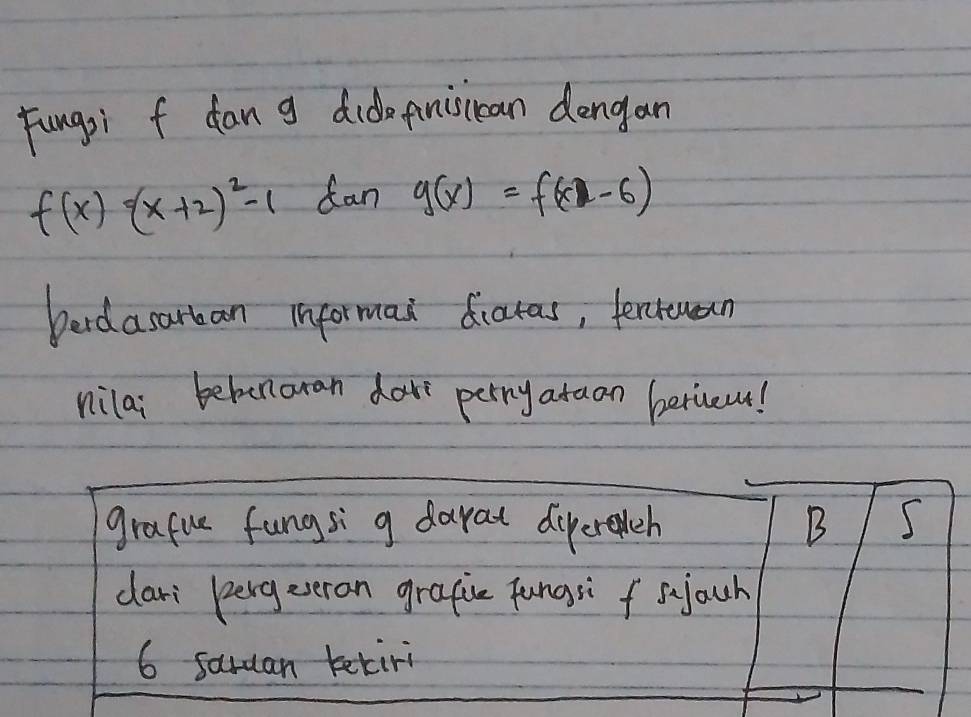 Fungsi f dan g didefinisikan dengan
f(x) = (x+2)²-1 dan g(x) = f(x-6)
berdasarkan informasi diatas, tentukan
nilai kebenaran dari pernyataan berikut!
grafik fungsi g dapat diperoleh B S
dari pergeseran grafik fungsi f sejauh
6 satuan kekiri